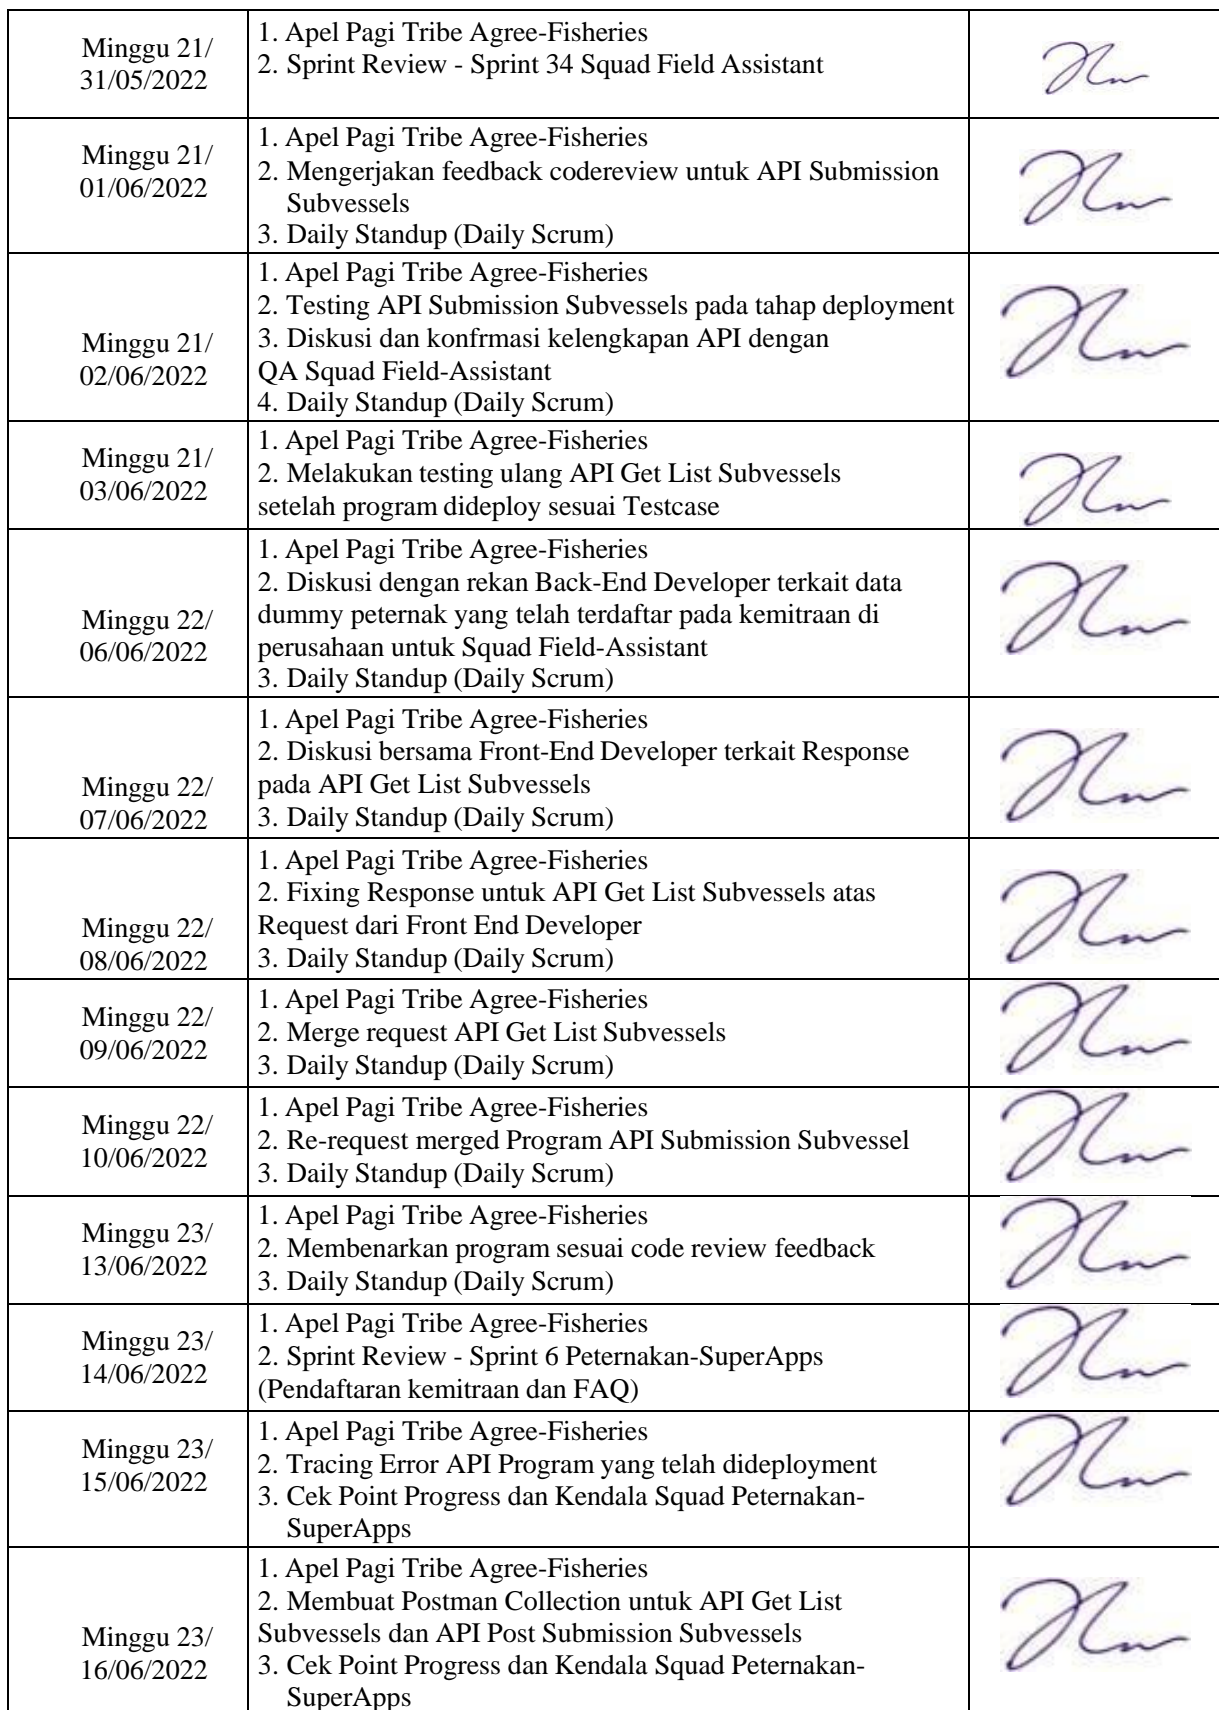 Minggu 21/
31/05/2022
1. Apel Pagi Tribe Agree-Fisheries
2. Sprint Review - Sprint 34 Squad Field Assistant
Minggu 21/
01/06/2022
1. Apel Pagi Tribe Agree-Fisheries
2. Mengerjakan feedback codereview untuk API Submission
Subvessels
3. Daily Standup (Daily Scrum)
Minggu 21/
02/06/2022
1. Apel Pagi Tribe Agree-Fisheries
2. Testing API Submission Subvessels pada tahap deployment
3. Diskusi dan konfrmasi kelengkapan API dengan
QA Squad Field-Assistant
4. Daily Standup (Daily Scrum)
Minggu 21/
03/06/2022
1. Apel Pagi Tribe Agree-Fisheries
2. Melakukan testing ulang API Get List Subvessels
setelah program dideploy sesuai Testcase
Minggu 22/
06/06/2022
1. Apel Pagi Tribe Agree-Fisheries
2. Diskusi dengan rekan Back-End Developer terkait data
dummy peternak yang telah terdaftar pada kemitraan di
perusahaan untuk Squad Field-Assistant
3. Daily Standup (Daily Scrum)
Minggu 22/
07/06/2022
1. Apel Pagi Tribe Agree-Fisheries
2. Diskusi bersama Front-End Developer terkait Response
pada API Get List Subvessels
3. Daily Standup (Daily Scrum)
Minggu 22/
08/06/2022
1. Apel Pagi Tribe Agree-Fisheries
2. Fixing Response untuk API Get List Subvessels atas
Request dari Front End Developer
3. Daily Standup (Daily Scrum)
Minggu 22/
09/06/2022
1. Apel Pagi Tribe Agree-Fisheries
2. Merge request API Get List Subvessels
3. Daily Standup (Daily Scrum)
Minggu 22/
10/06/2022
1. Apel Pagi Tribe Agree-Fisheries
2. Re-request merged Program API Submission Subvessel
3. Daily Standup (Daily Scrum)
Minggu 23/
13/06/2022
1. Apel Pagi Tribe Agree-Fisheries
2. Membenarkan program sesuai code review feedback
3. Daily Standup (Daily Scrum)
Minggu 23/
14/06/2022
1. Apel Pagi Tribe Agree-Fisheries
2. Sprint Review - Sprint 6 Peternakan-SuperApps
(Pendaftaran kemitraan dan FAQ)
Minggu 23/
15/06/2022
1. Apel Pagi Tribe Agree-Fisheries
2. Tracing Error API Program yang telah dideployment
3. Cek Point Progress dan Kendala Squad Peternakan-
SuperApps
Minggu 23/
16/06/2022
1. Apel Pagi Tribe Agree-Fisheries
2. Membuat Postman Collection untuk API Get List
Subvessels dan API Post Submission Subvessels
3. Cek Point Progress dan Kendala Squad Peternakan-
SuperApps